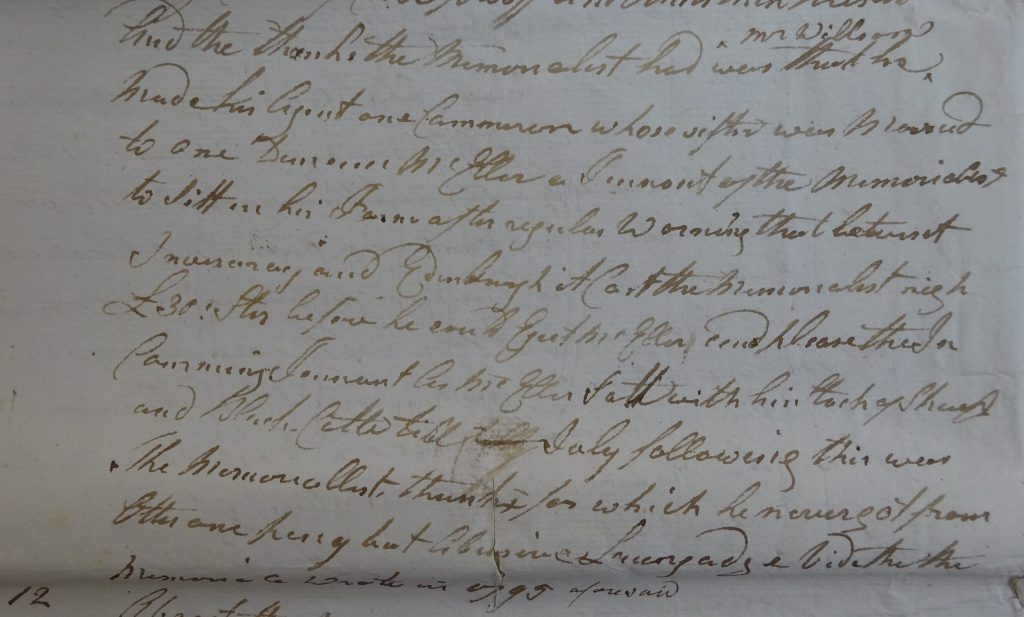 And the thanks the Memorialist had ^ was that he ^
mr Willson
Made his Agent one Cammeron whose sister was Married
to one Duncan Mc Eller a Tennant of the Memorialist
to Sitt in his Farm after regular Warning that betwixt
Inveraray and Edinburgh it Cost the Memorialist nigh
£30: Ster before he could Eject Mc Eller and please the In
Comming Tennant as Mc Eller Satt with his stock of Sheep
and Black Cattle till July following this was
The Memorallist thanks for which he never got from
Etter one penny but Abusive Languadge Vide the the
Memoria wrote in 1795 aforesaid
12